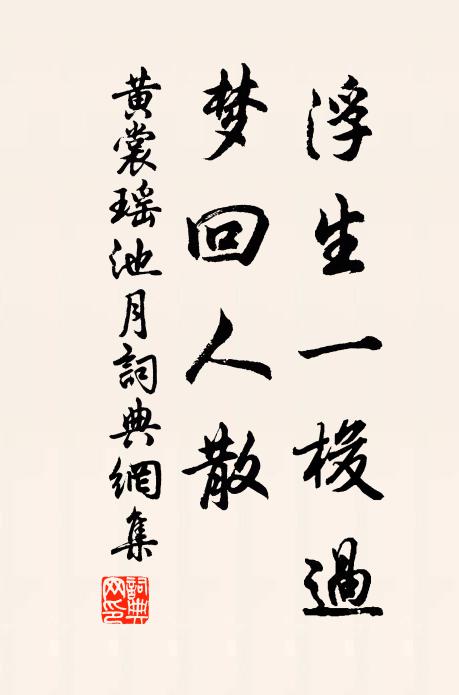 浮生一梭過
梦回人散
黃裳瑶池月詞典網集
詞典网印